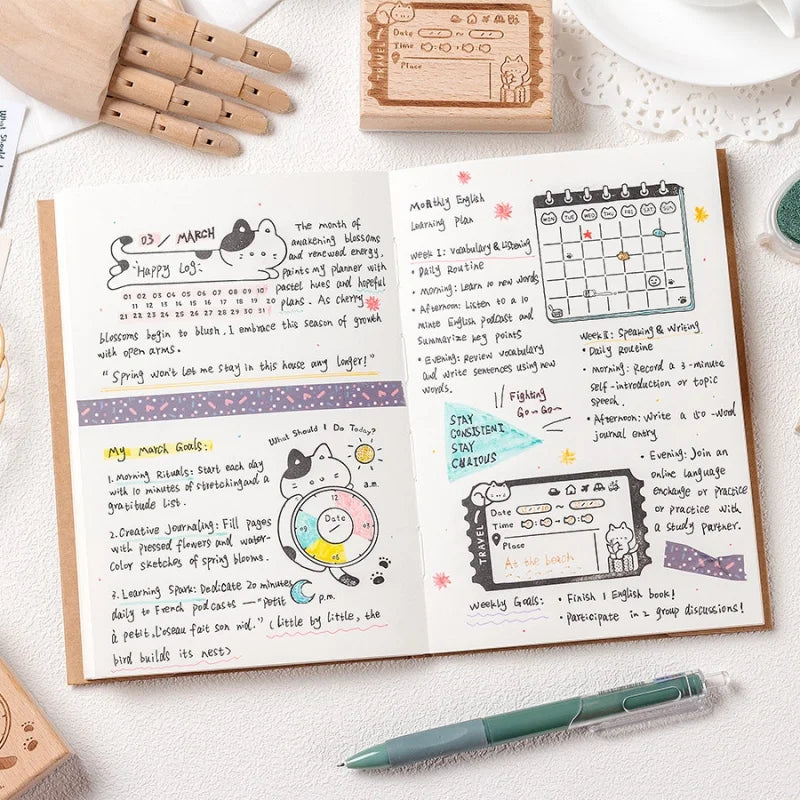 TRAVEL
Date
Time
Place
03 / MARCH
"Happy Log"
01 02 03 04 05 06 07 08 09 10
11 12 13 14 15 16 17 18 19 20
21 22 23 24 25 26 27 28 29 30 31
The month of
awakening blossoms
and renewed energy,
paints my planner with
pastel hues and hopeful
plans. As cherry
blossoms begin to blush, I embrace this season of growth
with open arms.
"Spring won't let me stay in this house any longer!"
My March Goals:
1. Morning Rituals: Start each day
with 10 minutes of stretching and a
gratitude list.
2. Creative Journaling: Fill pages
with pressed flowers and water-
color sketches of spring blooms.
3. Learning Spark: Dedicate 20 minutes
daily to French podcasts — "Petit
à petit, l'oseau fait son nid." (Little by little, the
bird builds its nest)
What Should I Do Today?
a.m.
12
03
06
09
Date
p.m.
Monthly English
Learning Plan
Week I: Vocabulary & Listening
• Daily Routine
• Morning: Learn 10 new words
• Afternoon: Listen to a 10
minte English podcast and
Summarize key points
• Evening: Review vocabulary
and write sentences using new
words.
MON TUE WED THU FRI SAT SUN
Week II: Speaking & Writing
• Daily Routine
• Morning: Record a 3-minute
self-introduction or topic
speech.
• Afternoon: Write a 150-word
journal entry
• Evening: Join an
online language
exchange or practice
or practice with
a study partner.
Fighting
Go~Go~
STAY
CONSISTENT,
STAY
CURIOUS
TRAVEL
Date
Time
Place
At the beach
Weekly Goals:
• Finish 1 English book!
• Participate in 2 group discussions!